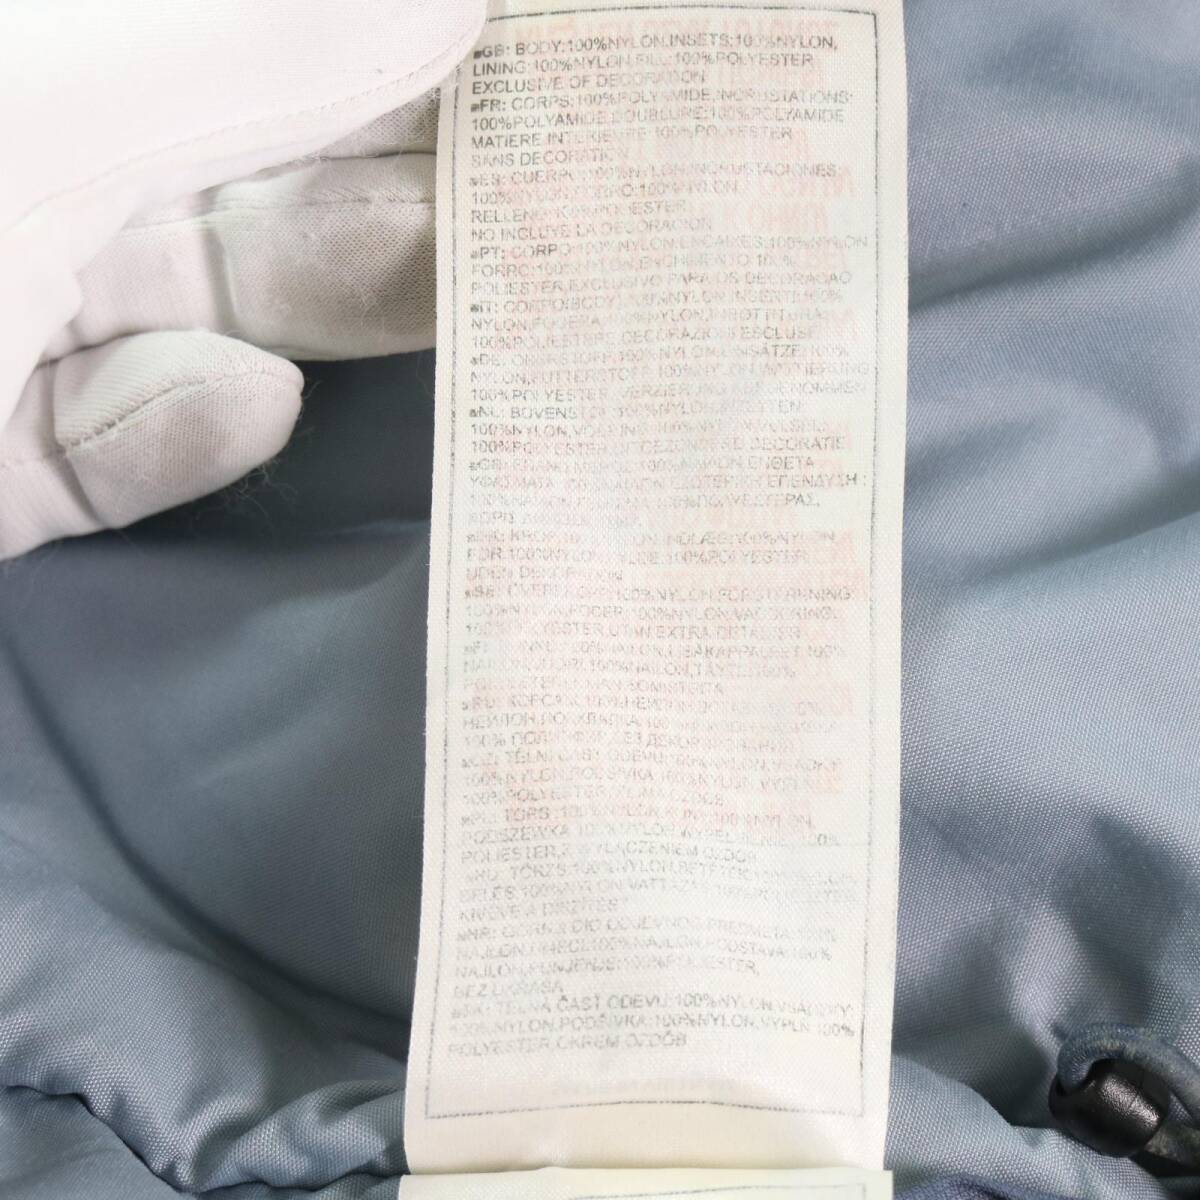 GB: BODY:100%NYLON,INSETS:100%NYLON,
LINING:100%NYLON,FILL:100%POLYESTER
EXCLUSIVE OF DECORATION
FR: CORPS:100%POLYAMIDE,INCRUSTATIONS:
100%POLYAMIDE,DOUBLURE:100%POLYAMIDE
MATIERE INTERIEURE:100%POLYESTER
SANS DECORATION
ES: CUERPO:100%NYLON,INCRUSTACIONES:
100%NYLON,FORRO:100%NYLON,
RELLENO:100%POLIESTER
NO INCLUYE LA DECORACION
PT: CORPO:100%NYLON,ENCAIXES:100%NYLON
FORRO:100%NYLON,ENCHIMENTO 100%
POLIESTER,EXCLUSIVO PARA OS DECORACAO
IT: CORPO(BODY):100%NYLON,INSERTI:100%
NYLON,FODERA:100%NYLON,IMBOTTITURA:
100%POLIESTERE,DECORAZIONI ESCLUSE
DE: OBERSTOFF:100%NYLON,EINSÄTZE:100%
NYLON,FUTTERSTOFF:100%NYLON,WATTIERUNG
100%POLYESTER,VERZIERUNG ABGENOMMEN
NL: BOVENSTOF:100%NYLON,
100%NYLON,VOERING:100%NYLON,VULSEL:
100%POLYESTER,UITGEZONDERD DECORATIE
100% ΕΝΘΕΤΑ
ΥΦΑΣΜΑΤΑ ΕΣΩΤΕΡΙΚΗ ΕΠΕΝΔΥΣΗ :
100%ΠΟΛΥΕΣΤΕΡΑΣ,
ΧΩΡΙΣ
DK: KROP:100%NYLON,INDLÆG:100%NYLON
FOR:100%NYLON,FYLDE:100%POLYESTER
UDEN DEKORATION
SE: 100%NYLON,FÖRSTÄRKNING:
100%NYLON,FODER:100%NYLON,VADDERING:
100%POLYESTER,UTAN EXTRA DETALJER
FI: 100%NAILON,LISÄKAPPALEET:100%
NAILON,VUORI:100%NAILON,TÄYTE:100%
RU: 100%
НЕЙЛОН,ПОДКЛАДКА:100%
100% БЕЗ ДЕКОРИРОВАНИЯ
CZ: TĚLNÍ ČÁST ODĚVU:100%NYLON,VSADKY:
100%NYLON,PODŠÍVKA:100%NYLON,VÝPLŇ:
100%POLYESTER,KROMĚ OZDOB
PL: TORS:100%NYLON, 100%NYLON,
PODSZEWKA:100%NYLON,WYPEŁNIENIE:100%
POLIESTER,Z WYŁĄCZENIEM OZDÓB
HU: TÖRZS:100%NYLON,BETÉTEK:
BÉLÉS:100%NYLON,VATTAZÁS:100%POLIÉSZTER
KIVÉVE A DÍSZÍTÉST
HR: GORNJI DIO ODJEVNOG PREDMETA:100%
NAJLON,UMECI:100%NAJLON,PODSTAVA:100%
NAJLON,PUNJENJE:100%POLIESTER,
BEZ UKRASA
SK: TELNÁ ČASŤ ODEVU:100%NYLON,VSÁDKY:
100%NYLON,PODŠÍVKA:100%NYLON,VÝPLŇ:100%
POLYESTER,OKREM OZDÔB